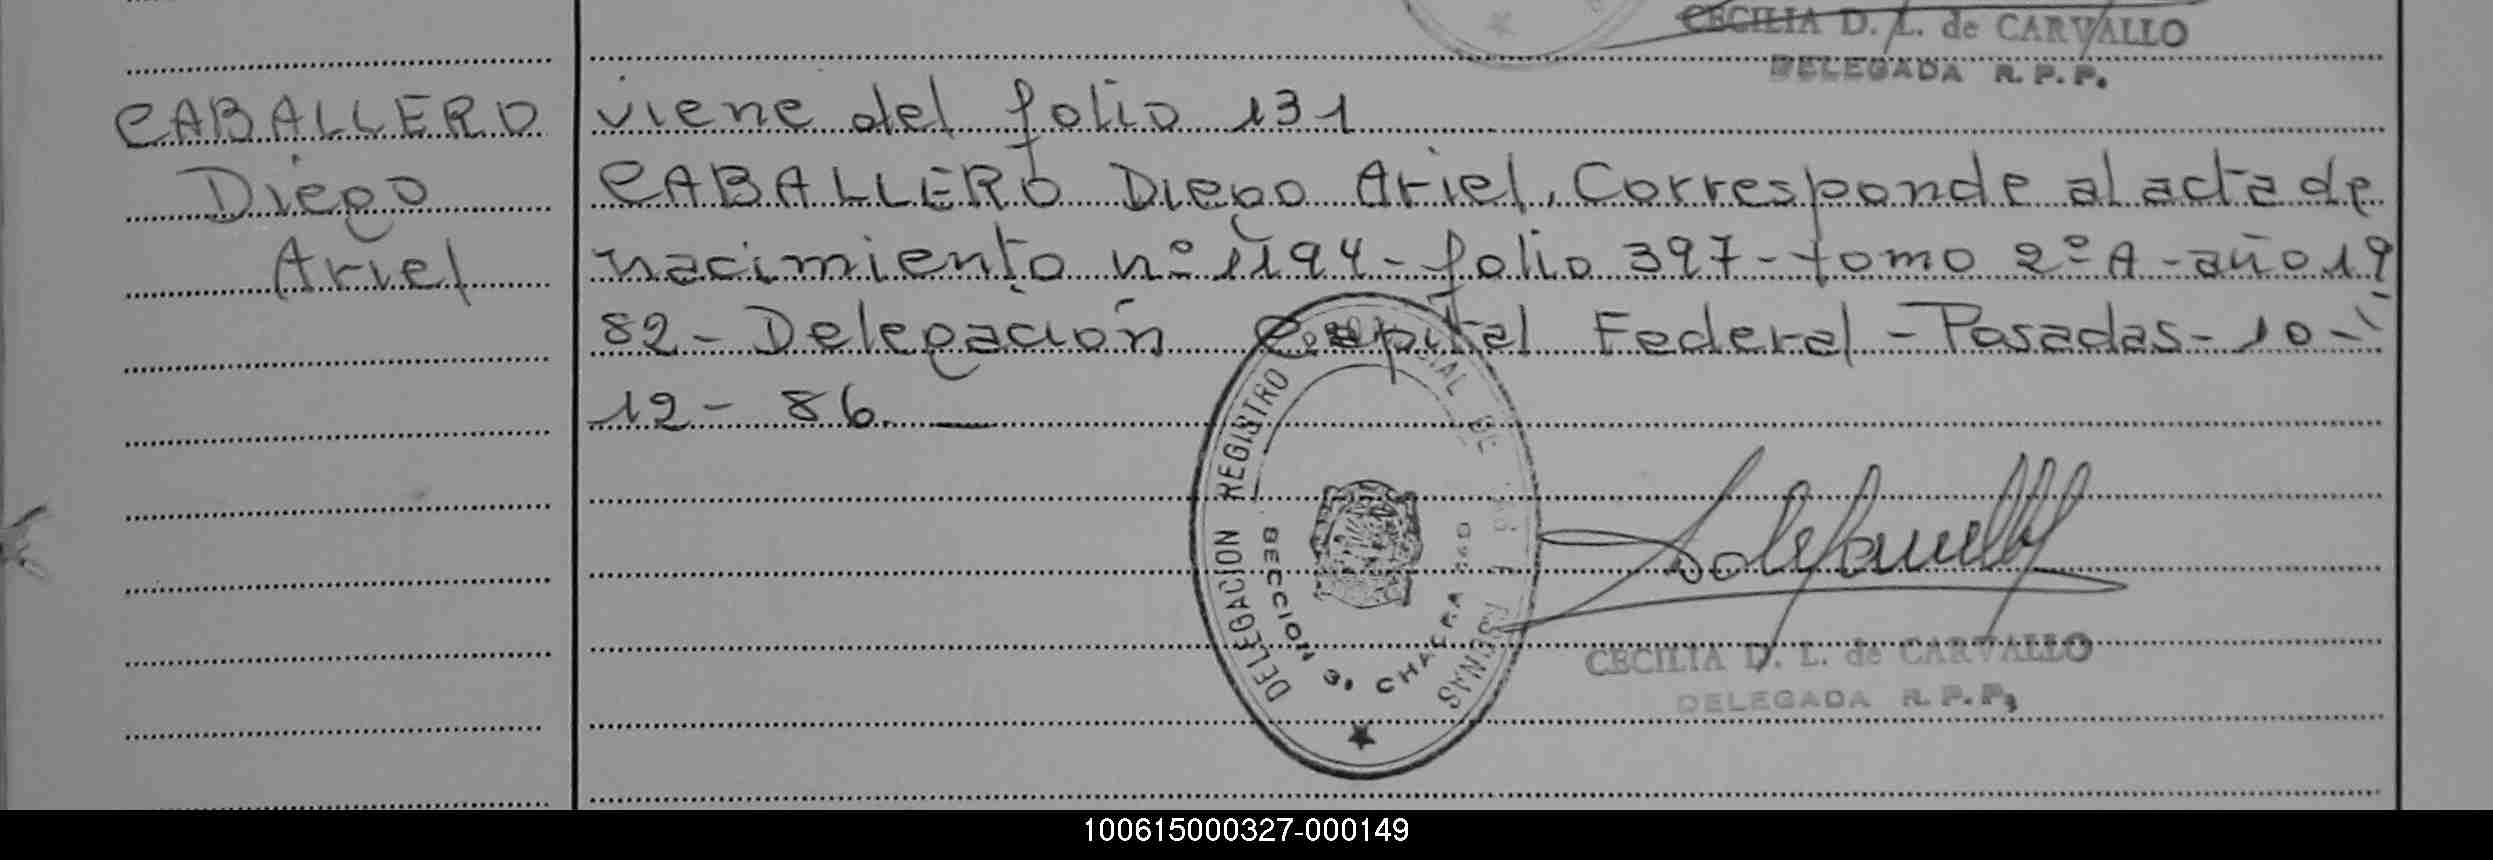 CECILIA D. L. de CARVALLO
DELEGADA R. P. P.
CABALLERO
Diego
Ariel
viene del folio 131
CABALLERO Diego Ariel, Corresponde al acta de
nacimiento nº 1194 - folio 397 - tomo 2º A - año 19
82 - Delegación Capital Federal - Posadas - 10 -
12 - 86.
DELEGACION REGISTRO
DE
SECCION
CHACRA
CECILIA D. L. de CARVALLO
DELEGADA R. P. P.
100615000327-000149